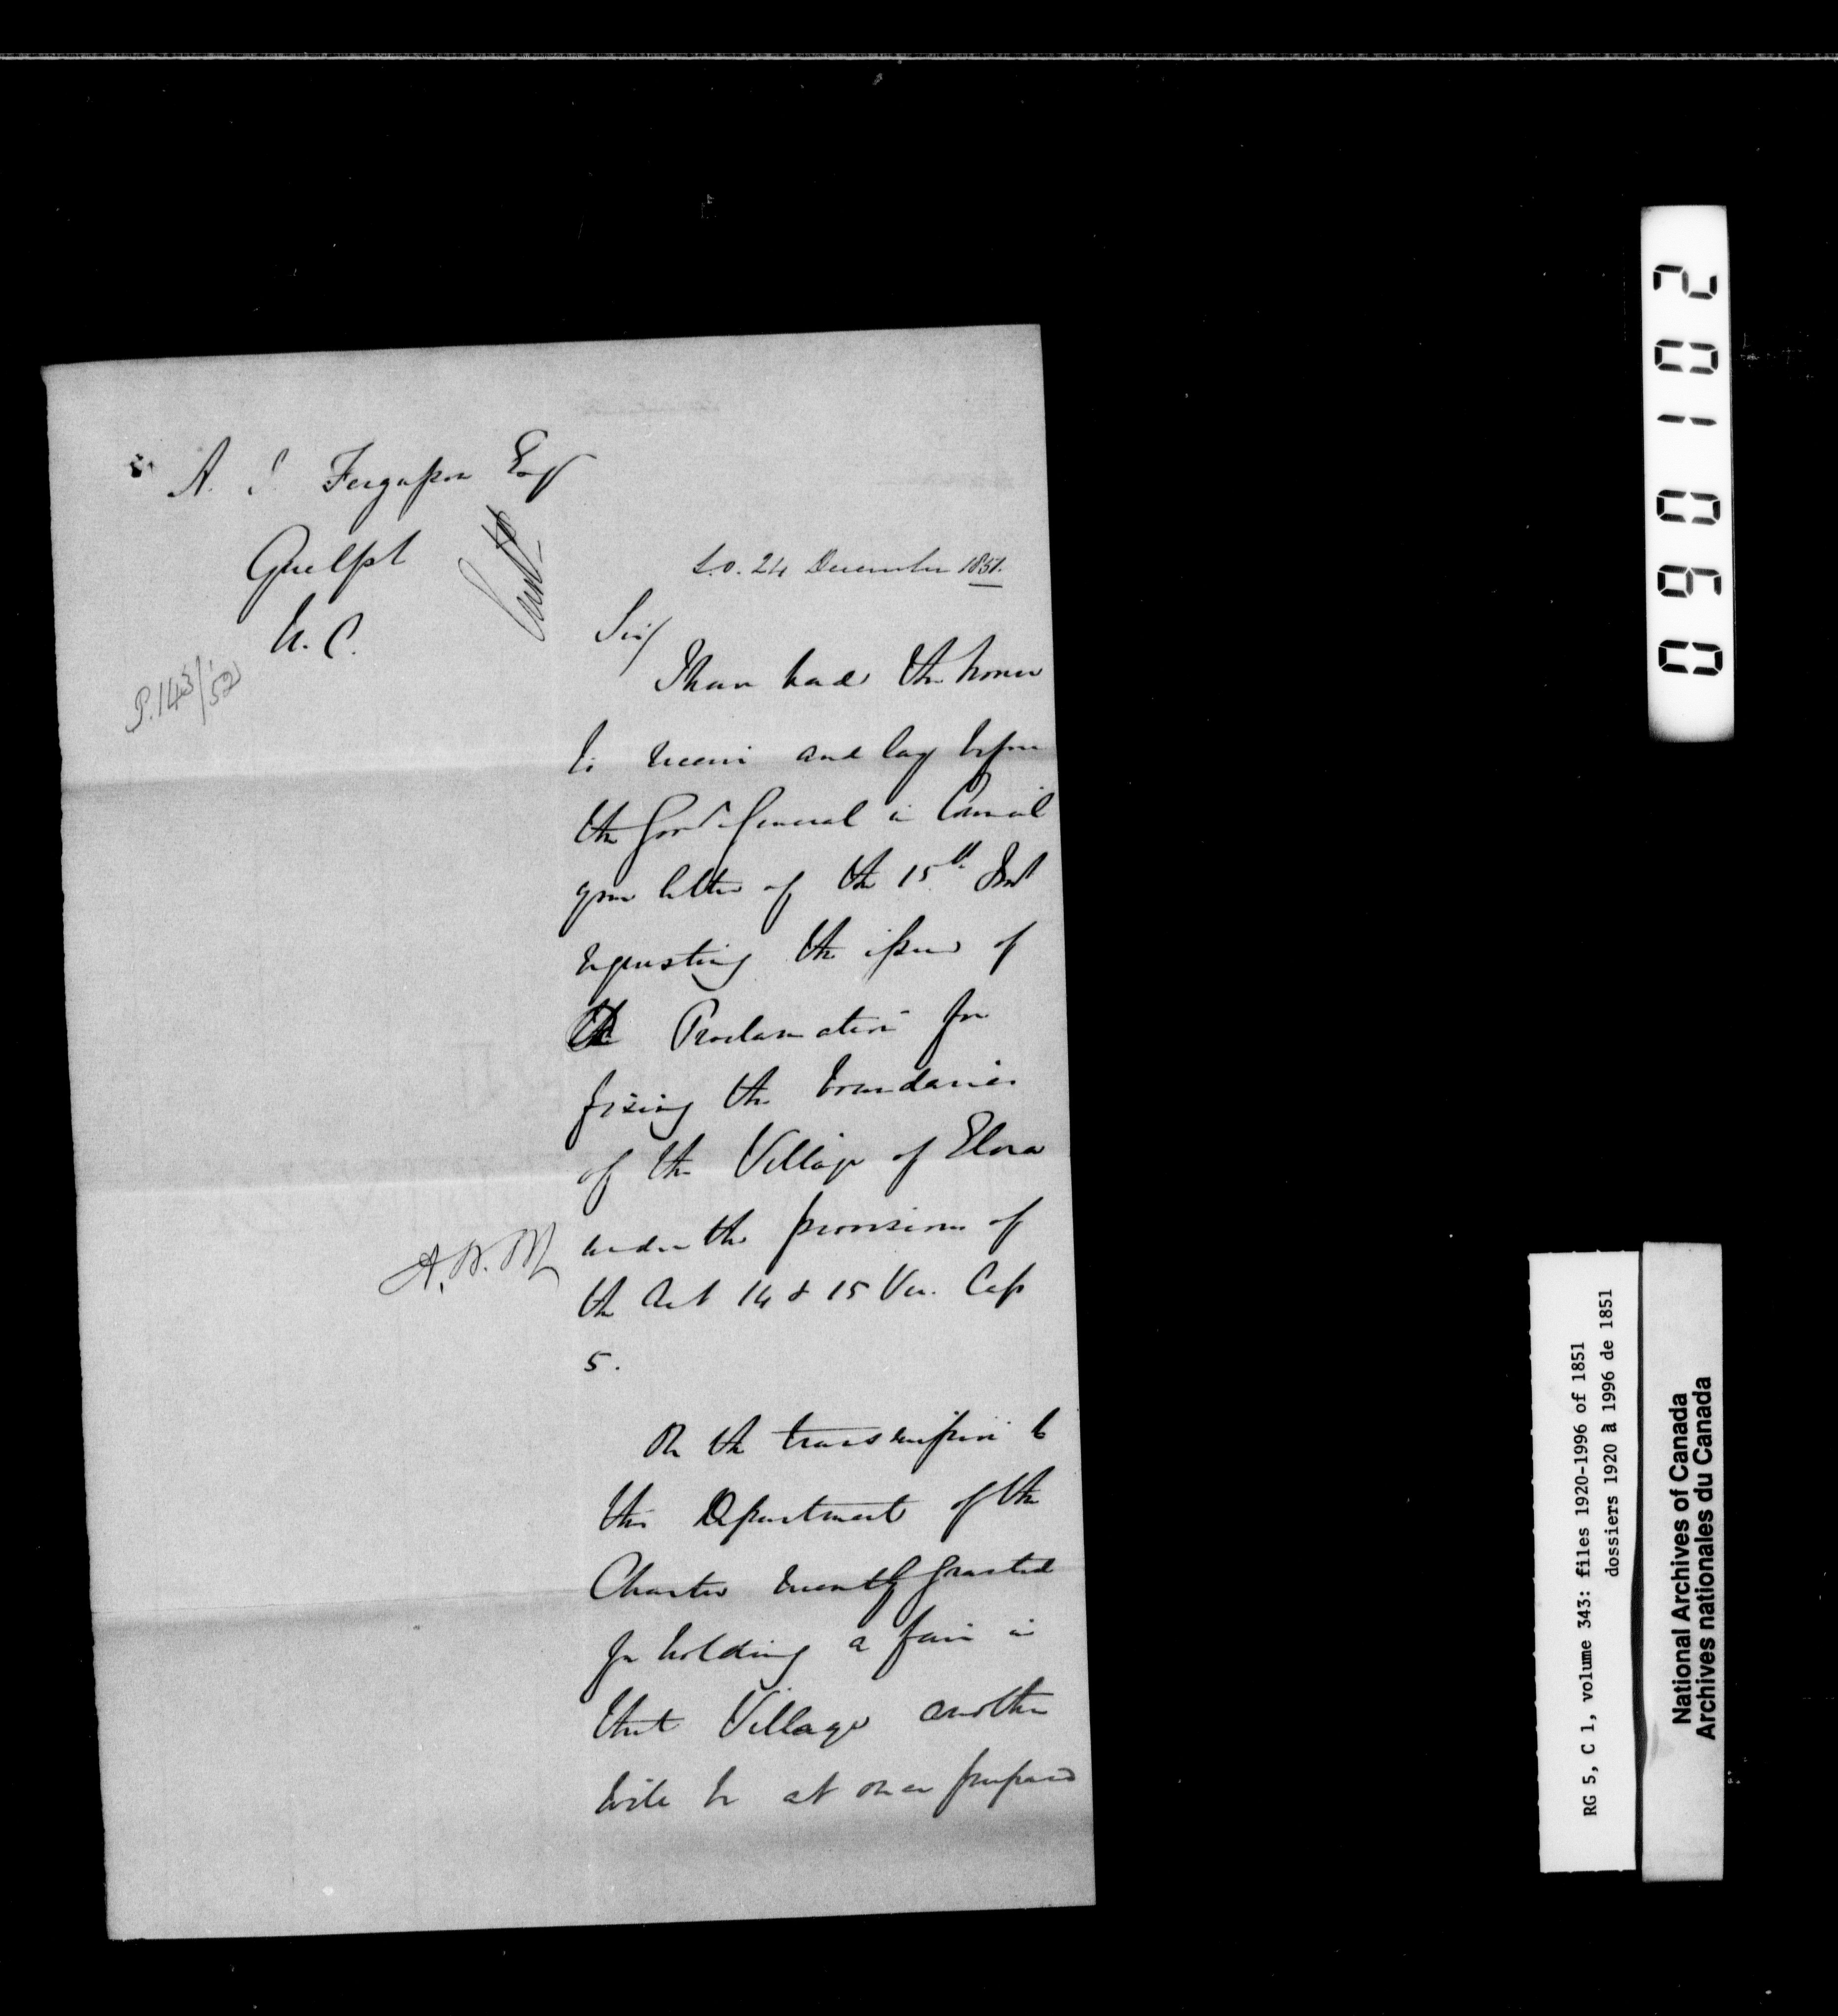 A. J. Fergusson Esqr
Guelph
U. C.
P. 143/'52
S.O. 24 December 1851.
Sir/
I have had the honor
to receive and lay before
the Govr General in Council
your letter of the 15th Inst
requesting the issue of
the Proclamation for
fixing the boundaries
of the Village of Elora
under the provisions of
the Act 14 & 15 Vic. Cap
5.
On the transmission to
this Department of the
Charter recently granted
for holding a fair in
that Village another
will be at once prepared
2 0 1 0 6 0
RG 5, C 1, volume 343: files 1920-1996 of 1851
dossiers 1920 à 1996 de 1851
National Archives of Canada
Archives nationales du Canada